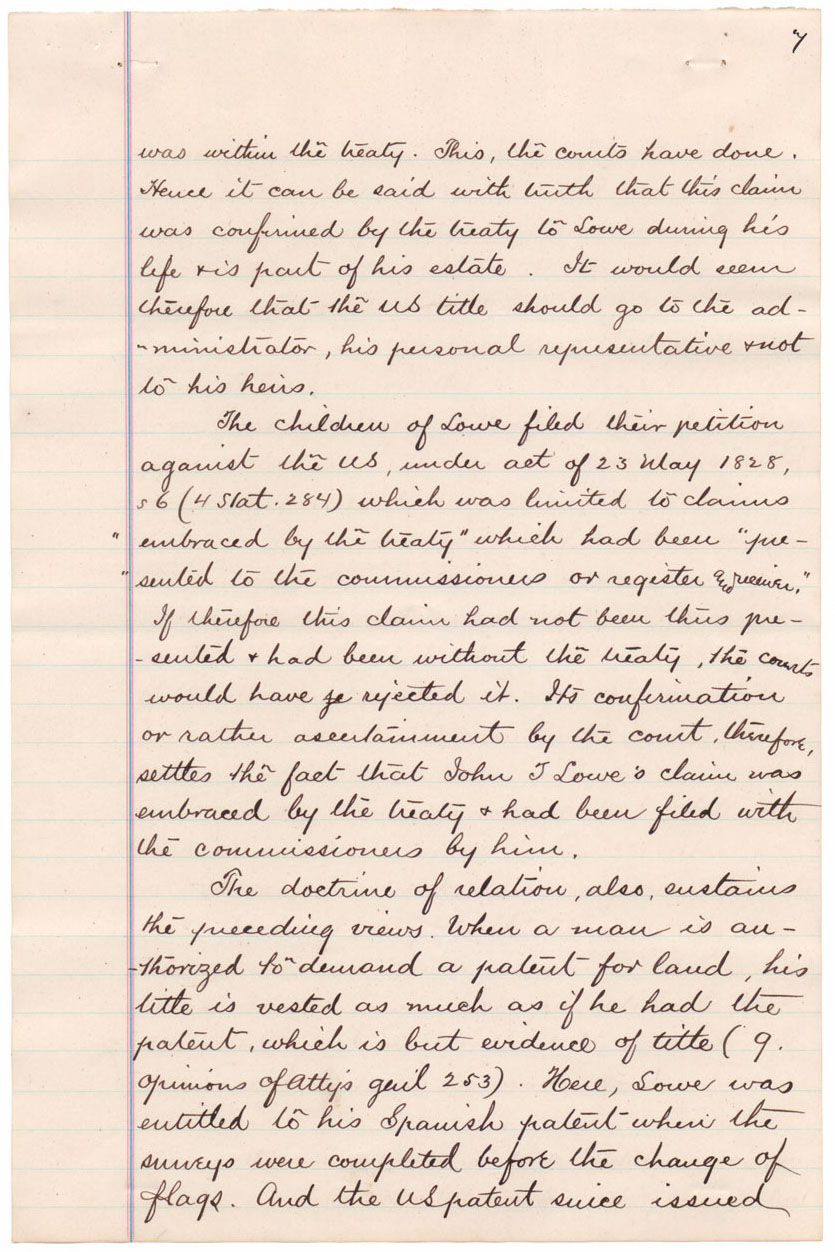 7
was within the treaty. This, the courts have done.
Hence it can be said with truth that this claim
was confirmed by the treaty to Lowe during his
life & is part of his estate. It would seem
therefore that the US title should go to the ad-
-ministrator, his personal representative & not
to his heirs.
The children of Lowe filed their petition
against the US, under act of 23 May 1828,
s 6 (4 Stat. 284) which was limited to claims
"embraced by the treaty" which had been "pre-
"sented to the commissioners or register and receiver."
If therefore this claim had not been thus pre-
-sented & had been without the treaty, the courts
would have re rejected it. Its confirmation
or rather ascertainment by the court, therefore,
settles the fact that John T Lowe's claim was
embraced by the treaty & had been filed with
the commissioners by him.
The doctrine of relation, also, sustains
the preceding views. When a man is au-
-thorized to demand a patent for land, his
title is vested as much as if he had the
patent, which is but evidence of title (9.
Opinions of Attys genl 253). Here, Lowe was
entitled to his Spanish patent when the
surveys were completed before the change of
flags. And the US patent since issued